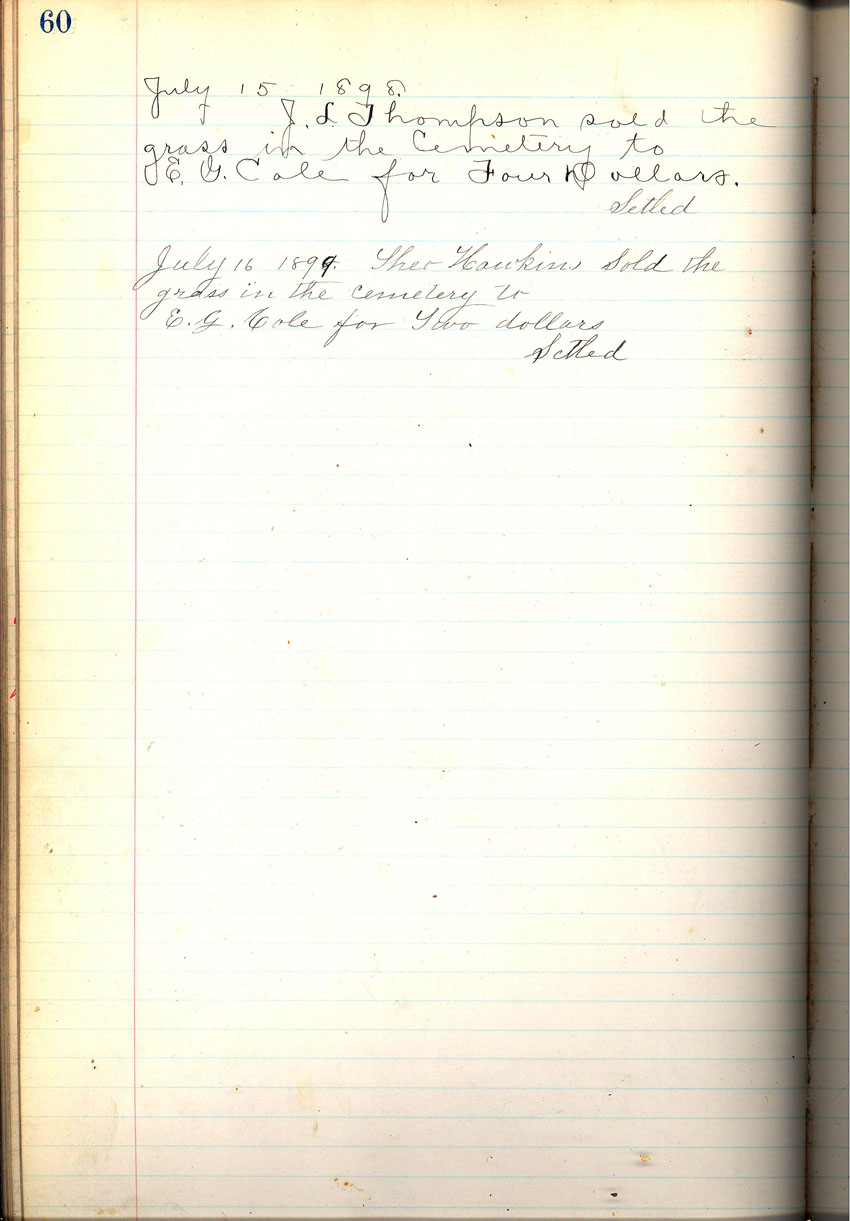 60
July 15 1898.
J. L. Thompson sold the
grass in the Cemetery to
E. G. Cole for Four Dollars.
Setled
July 16 1899. Theo Hawkins Sold the
grass in the cemetery to
E. G. Cole for Two dollars
Setled